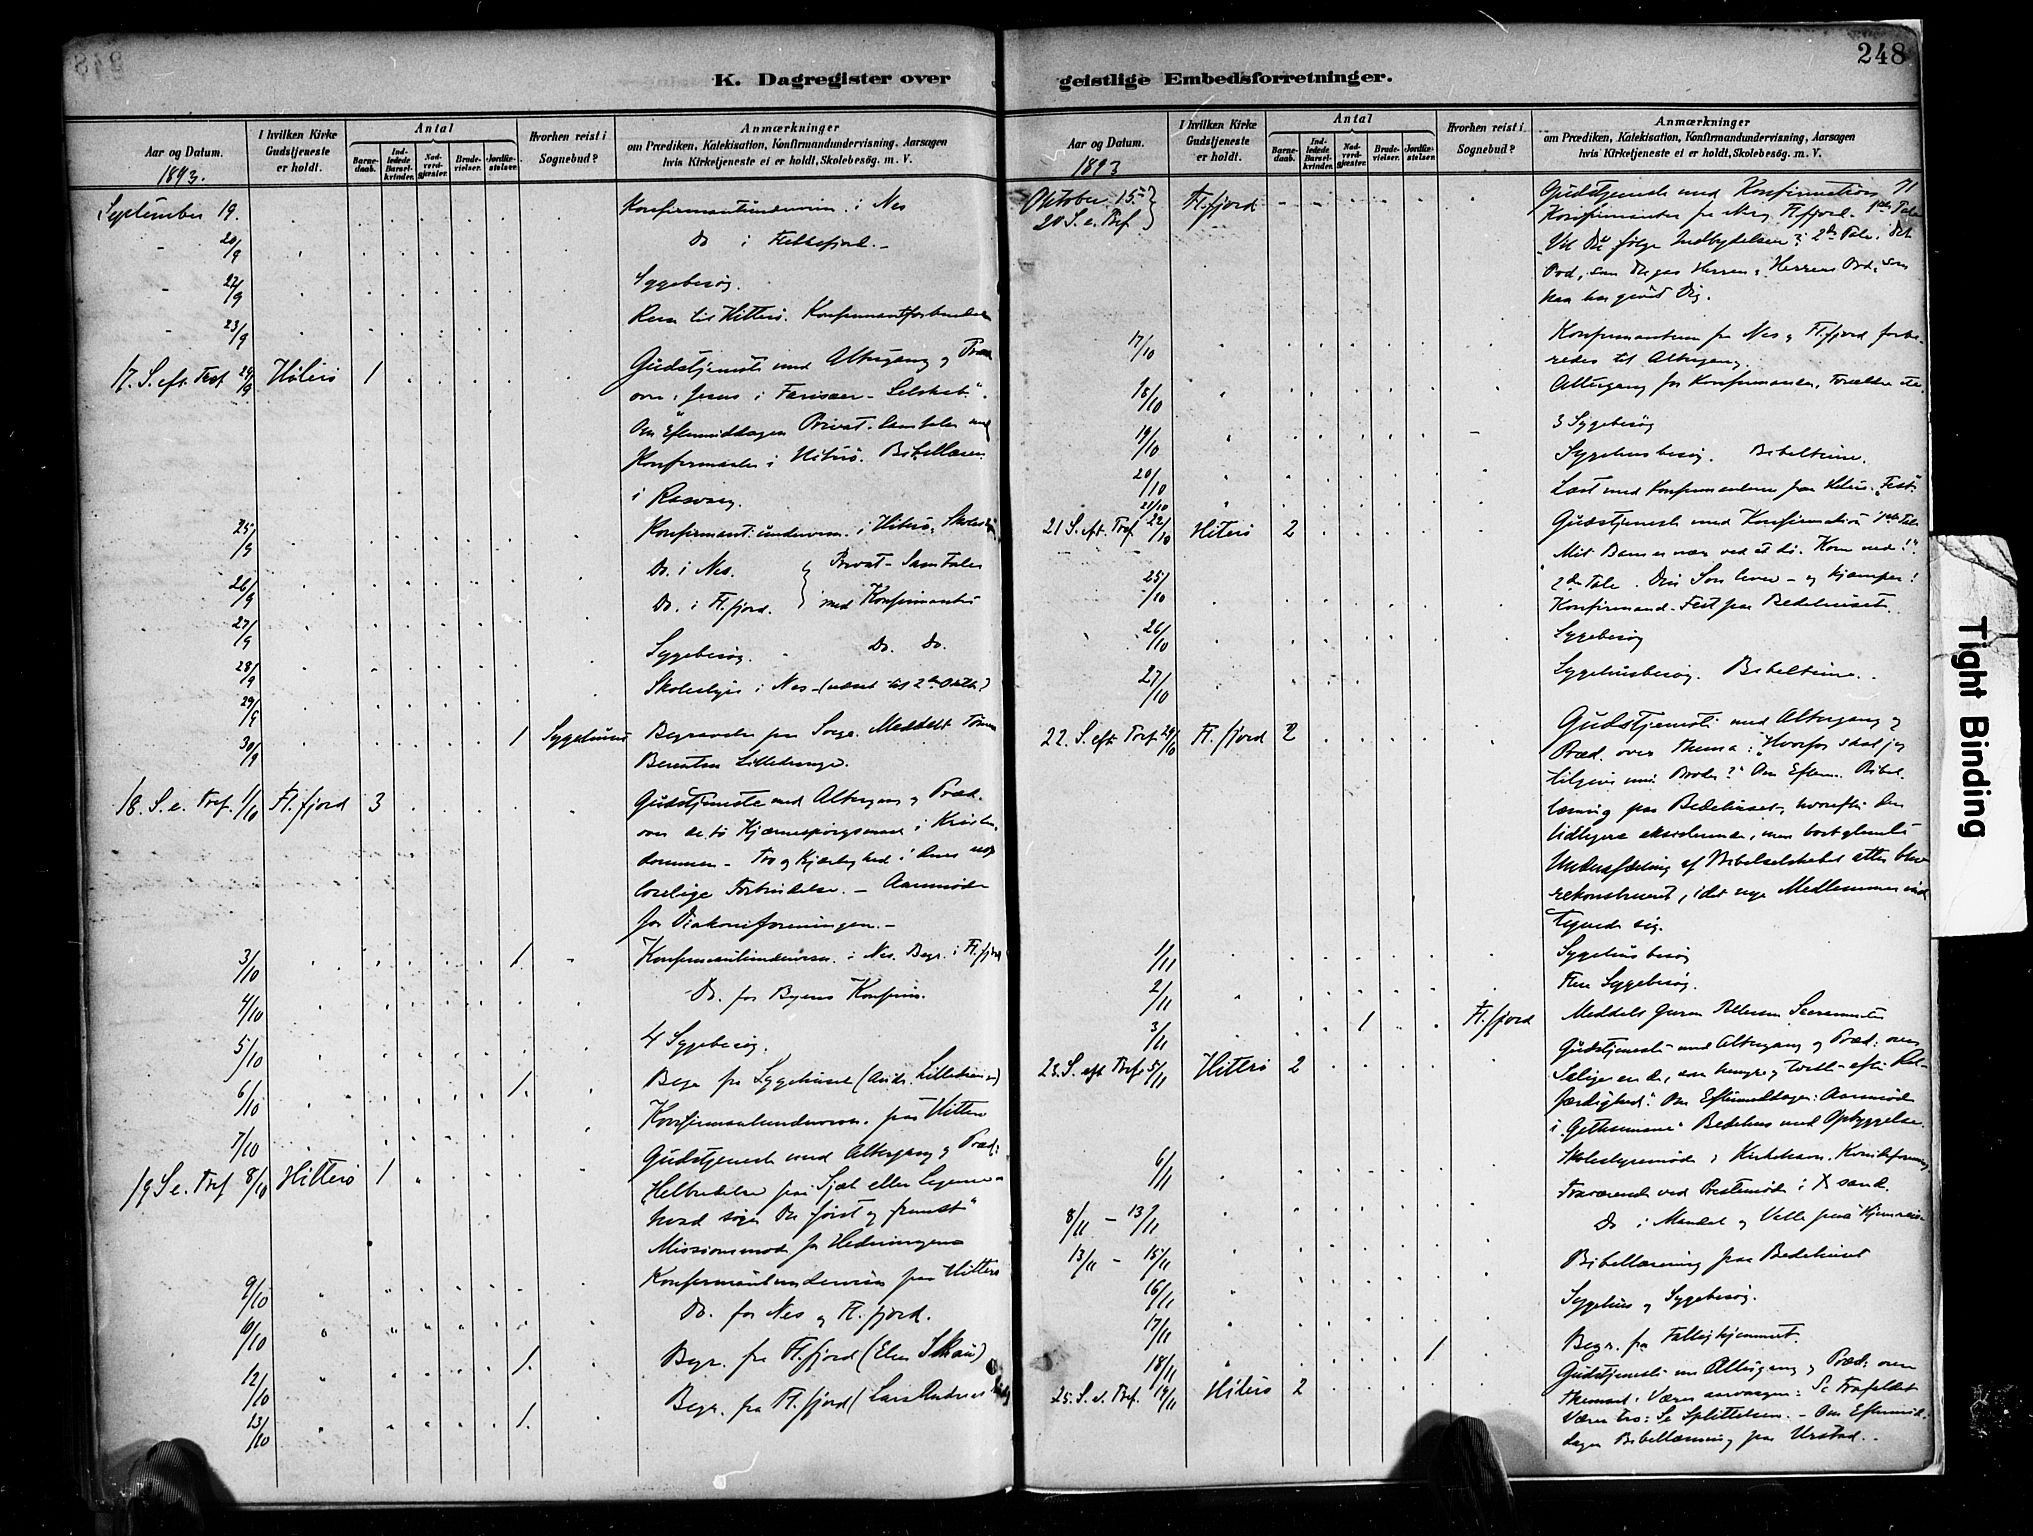 248
K. Dagregister over
Aar og Datum.
1893.
I hvilken Kirke Gudstjeneste er holdt.
Antal
Barnedaab.
Indledede Barselkvinder.
Nadverdgjæster.
Brudevielser.
Jordfæstelser.
Hvorhen reist i Sognebud?
Anmærkninger
om Prædiken, Katekisation, Konfirmandundervisning, Aarsagen
hvis Kirketjeneste ei er holdt, Skolebesøg. m. V.
September 19. Konfirmantundervisn. i Nes
20/9 Do i Flekkefjord.
22/9 Sygebesøg.
23/9 Reise til Hitterø.
17. S. eft. Tref 24/9 Hitterø 1 Gudstjeneste med Altergang og
over: Jesus i Farisæer-Selskab.
Om Eftermiddagen Privat-Samtaler med
Konfirmanter i Hiterø. Bibellæsn
i Rasvaag
25/9 Konfirmant.undervisn. i Hiterø.
26/9 Do. i Nes. Privat-Samtaler
27/9 Do. i Fl.fjord. med Konfirmanter
28/9 Sygebesøg. Do. Do.
29/9 Skolestyre i Nes
30/9 1 Sygehuset
Berentsen
18. S. e. Tref. 1/10 Fl.fjord 3 Gudstjeneste med Altergang og Præd.
over de to i Kristen-
dommen - Tro og Kjærlighed i deres uop-
løselige Forbindelse. - Aarsmøde
for Diakoniforeningen.-
3/10 1 Konfirmantundervisn. i Nes. Begr. i Fl.fjord
4/10 Do. for Byens Konfirm.
5/10 4 Sygebesøg.
6/10 1. Begr. fra Sygehuset
7/10 Konfirmantundervisn. paa Hitterø
19 S. e. Tref 8/10 Hitterø 1 Gudstjeneste med Altergang og Præd:
"Helbredelse paa Sjæl eller Legeme -
hvad søger Du først og fremst"
Missionsmøde for Hedningerne
9/10 Konfirmantundervisn paa Hitterø
10/10 Do. for Nes og Fl.fjord.
12/10 1. Begr. fra Fl.fjord
13/10 1. Begr. fra Fl.fjord (Lars Andreas
geistlige Embedsforretninger.
Aar og Datum.
1893
I hvilken Kirke Gudstjeneste er holdt.
Antal
Barnedaab.
Indledede Barselkvinder.
Nadverdgjæster.
Brudevielser.
Jordfæstelser.
Hvorhen reist i Sognebud?
Anmærkninger
om Prædiken, Katekisation, Konfirmandundervisning, Aarsagen
hvis Kirketjeneste ei er holdt, Skolebesøg. m. V.
Oktober 15 Fl.fjord Gudstjeneste med Konfirmation 71
20 S. e. Tref Konfirmanter fra Nes og Fl.fjord. 1ste Tale
"Vil Du følge Indbydelsen? 2den Tale. Det
Ord, som Herrens Ord, som
han har givet Dig.
17/10 Konfirmanterne fra Nes og Fl.fjord forbe-
redes til Altergang.
18/10 Altergang for Konfirmanter, Forældre etc
19/10 3 Sygebesøg
20/10 Sygehusbesøg. Bibeltime.
21/10 Læst med Konfirmanterne paa Hiterø.
21 S. eft. Tref. 22/10 Hiterø 2 Gudstjeneste med Konfirmation 1ste Tale
Mit Barn er nær ved at dø. Kom ned!".
2den Tale. Din Søn lever - og kjæmper!
Konfirmand-Fest paa Bedehuset.
25/10
26/10 Sygebesøg
27/10 Sygehusbesøg. Bibeltime.
22. S. eft Tref. 29/10 Fl.fjord 2 Gudstjeneste med Altergang og
Præd. over Thema: "Hvorfor skal jeg
tilgive min Broder?" Om Efterm. Bibel-
læsning paa Bedehuset, hvorefter den
tidligere eksisterende, men
Underafdeling af Bibelselskabet atter blev
rekonstrueret, idet nye Medlemmer ind-
tegnede sig.
1/11 Sygehusbesøg
2/11 Flere Sygebesøg.
3/11 1 Fl.fjord
23. S. eft Tref. 5/11 Hitterø 2 Gudstjeneste med Altergang og Præd: over
Salige er de, som hungre og tørste efter Ret-
færdighed". Om Eftermiddagen: Aarsmøde
i "Gethsemane" Bedehus med Opbyggelse.
6/11
8/11 - 13/11 Fraværende ved Prestemøde i X sand.
13/11 - 15/11 Do i Mandal og Valle paa Hjemreise
16/11 Bibellæsning paa Bedehuset
17/11 Sygehus og Sygebesøg.
18/11 1 Begr. fra Fattighjemmet.
25. S. e. Tref. 19/11 Hiterø 2 Gudstjeneste m Altergang og Præd: over
Været tro: Se Splittelsen. - Om Eftermid-
dagen Bibellæsning paa Urstad.
Tight Binding